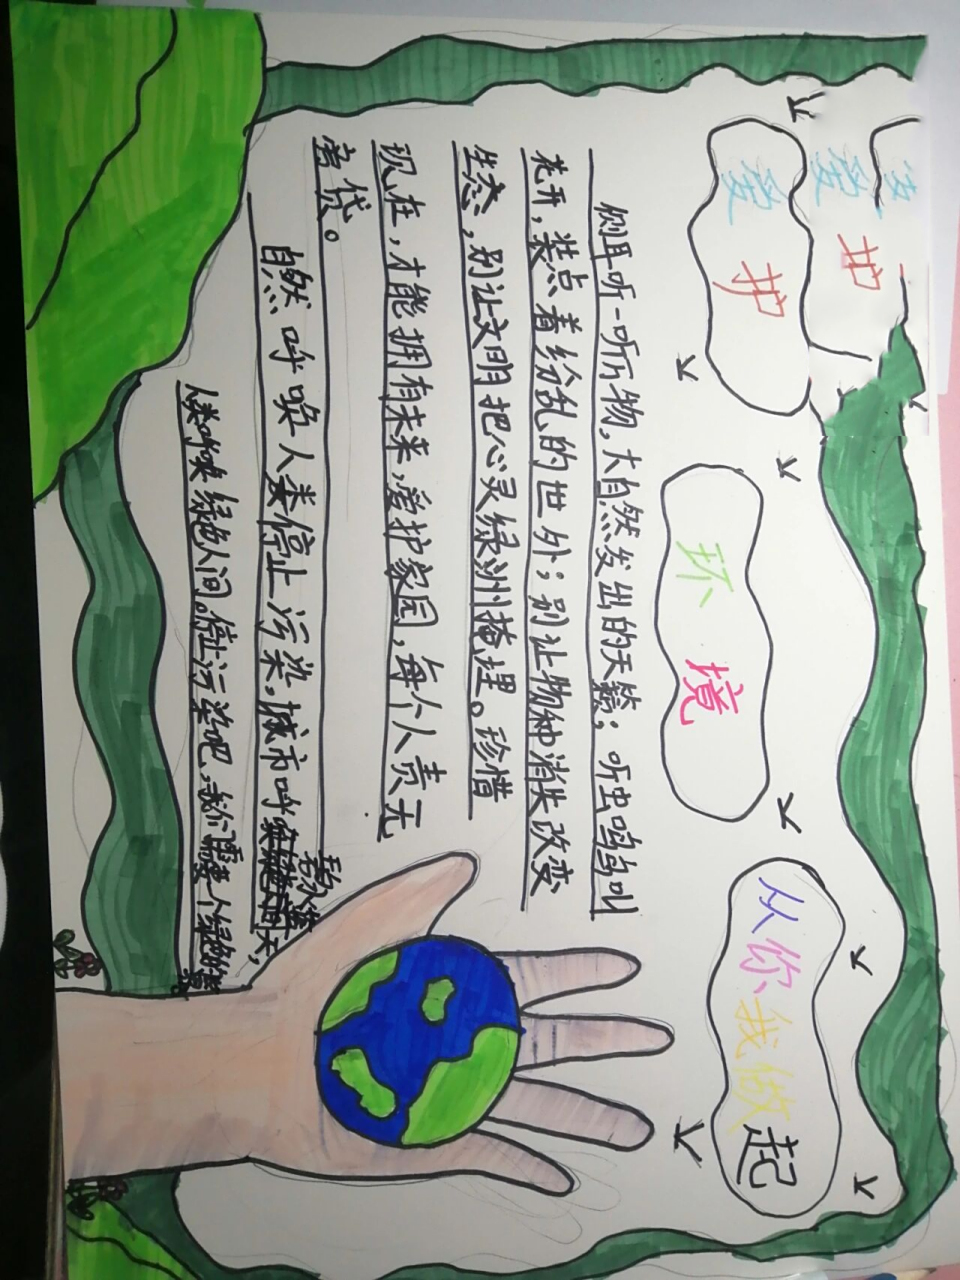 爱护
爱护
爱护
环境
从你我做起
侧耳听一听万物,大自然发出的天籁;听虫鸣鸟叫
花开,装点着纷乱的世外;别让物种消失改变
生态,别让文明把心灵绿洲掩埋。珍惜
现在,才能拥有未来,爱护家园,每个人责无
旁贷。
自然呼唤人类停止污染,城市呼唤碧水蓝天,
人类呼唤绿色人间。停止污染吧,我们需要一个绿色的